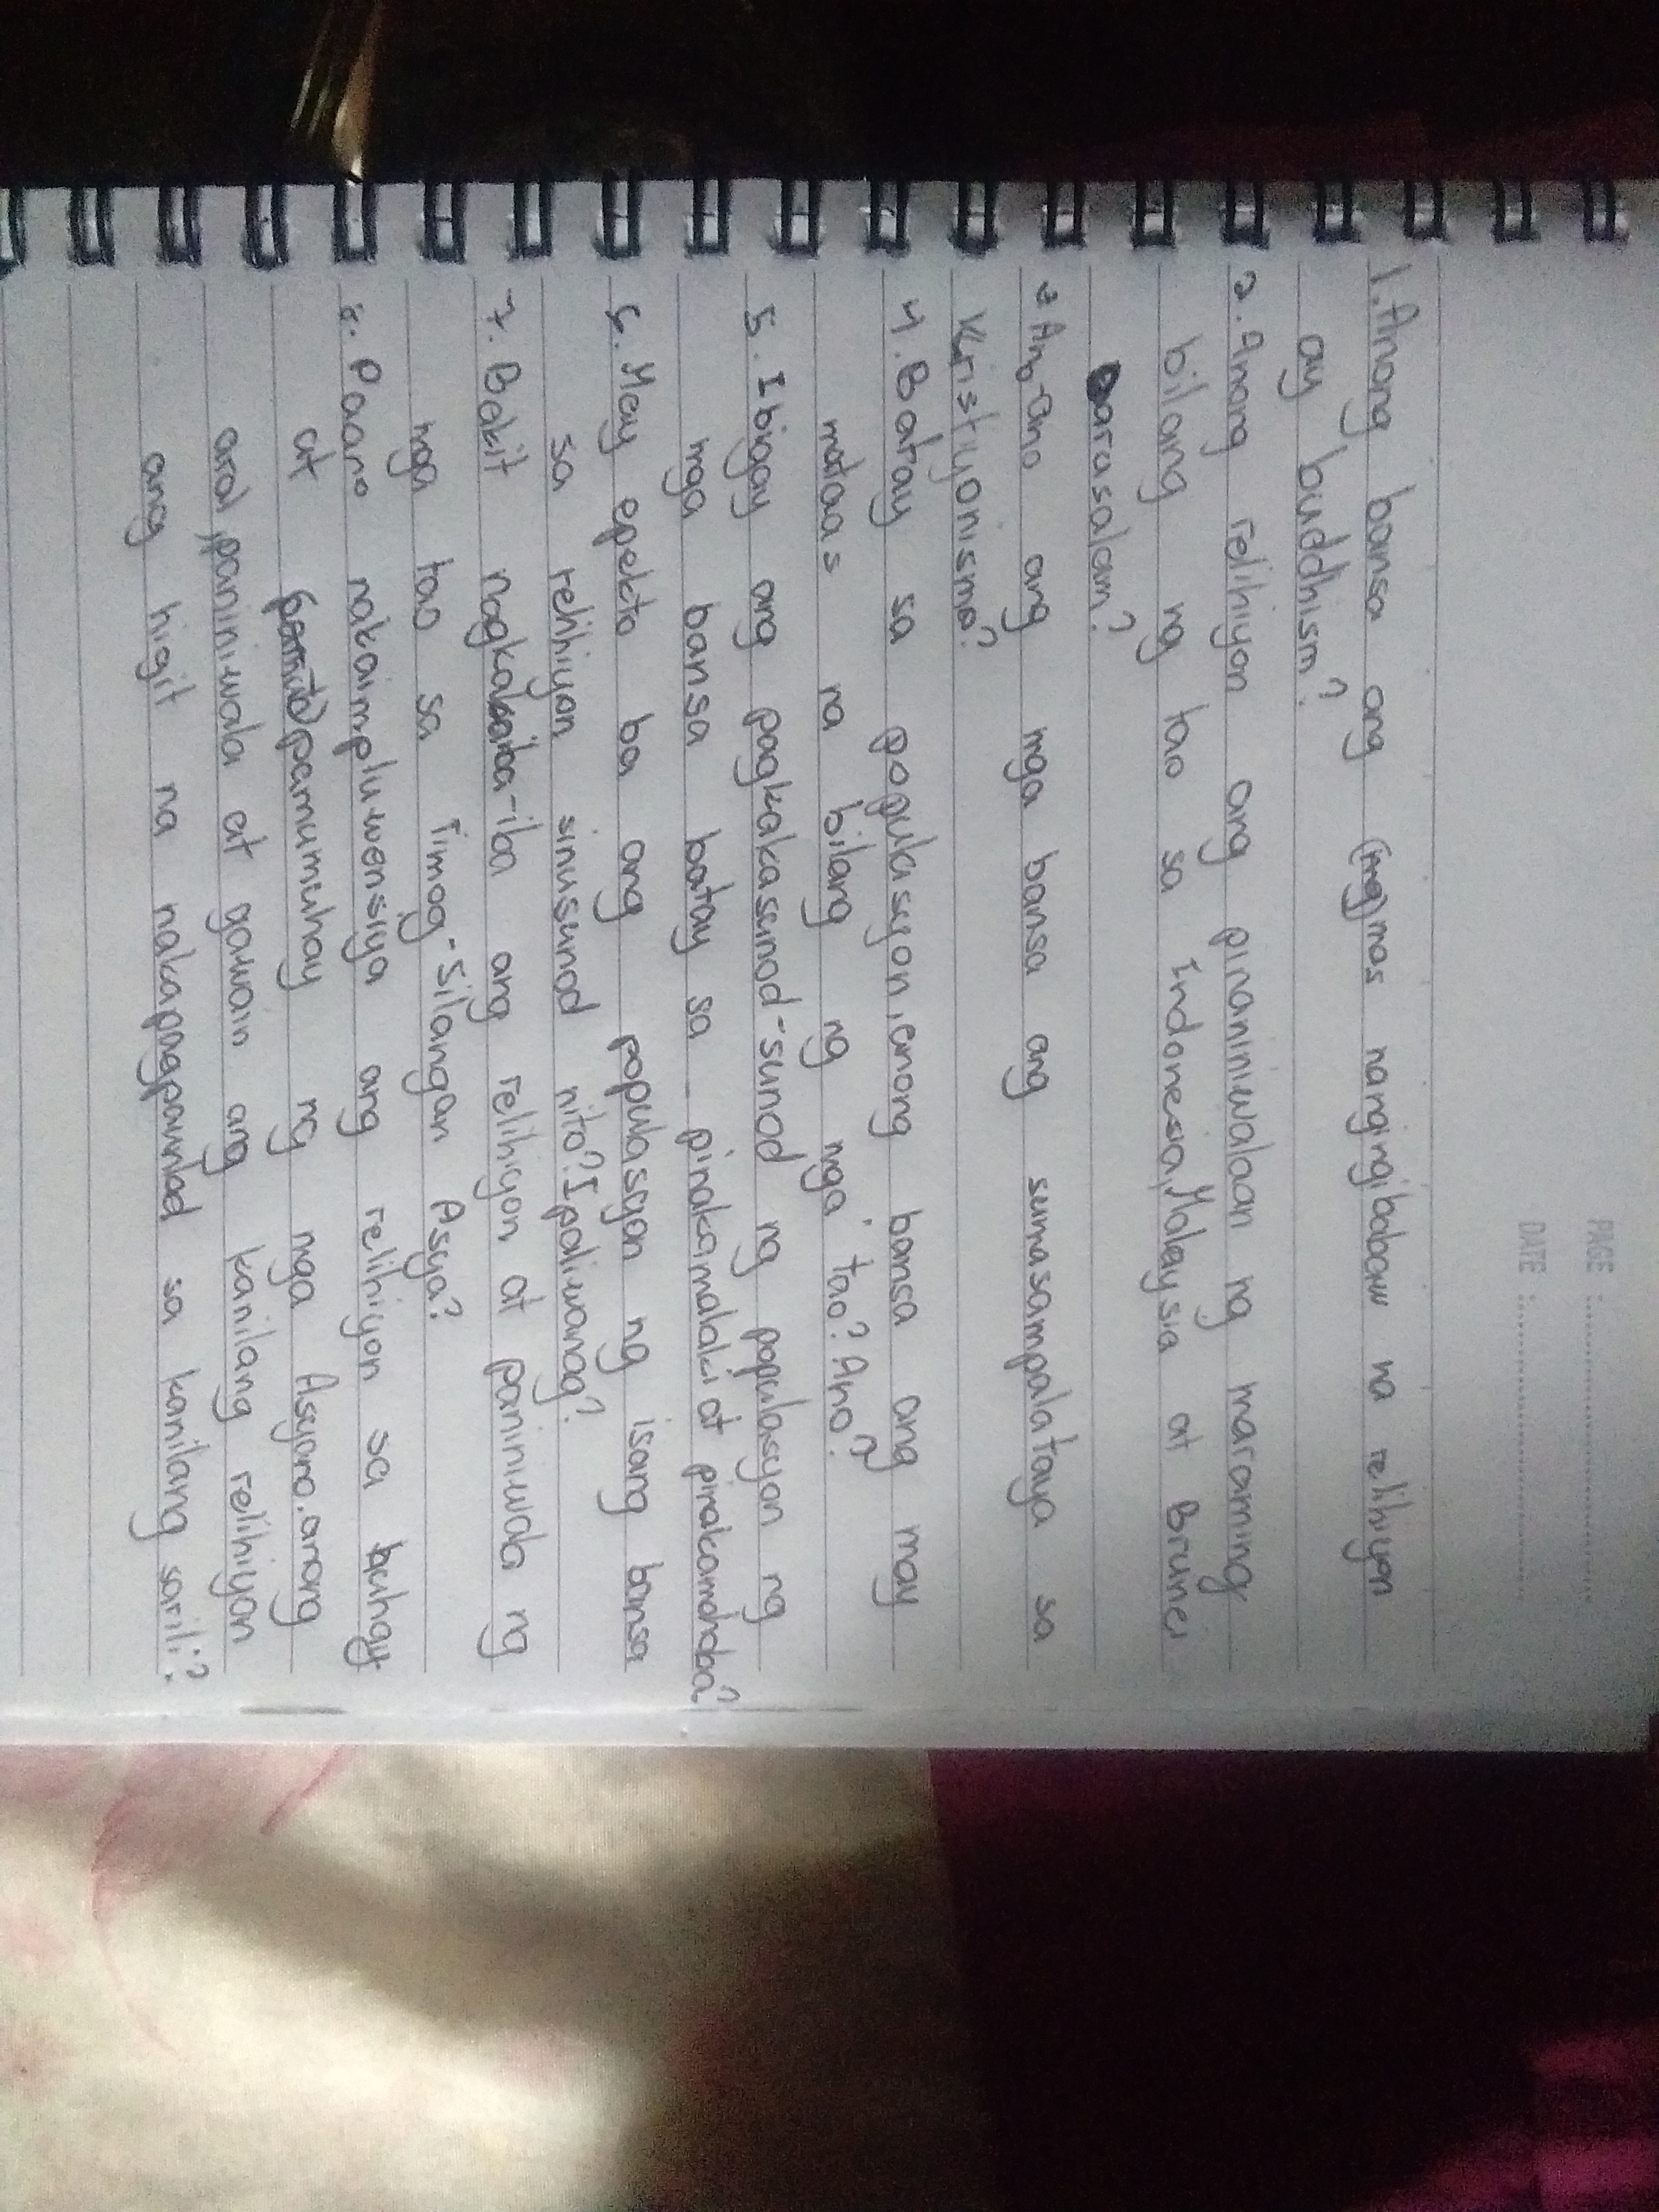 PAGE :
DATE :
1. Anong bansa ang (mg) mas nangingibabaw na relihiyon
ay buddhism?
2. Anong relihiyon ang pinaniniwalaan ng maraming
bilang ng tao sa Indonesia, Malaysia at Brunei
Darusalam?
3 Ano-ano ang mga bansa ang sumasampalataya sa
Kristiyonismo?
4. Batay sa populasyon, anong bansa ang may
mataas na bilang ng mga tao? Ano?
5. Ibigay ang pagkakasunod-sunod ng populasyon ng
mga bansa batay sa pinakamalaki at pinakamababa?
6. May epekto ba ang populasyon ng isang bansa
sa relihiyon sinusunod nito? Ipaliwanag?
7. Bakit nagkakaiba-iba ang relihiyon at paniniwala ng
mga tao sa Timog-Silangan Asya?
8. Paano nakaimpluwensiya ang relihiyon sa buhay
at pamumuhay ng mga Asyano. anong
aral, paniniwala at gawain ang kanilang relihiyon
ang higit na nakapagpaunlad sa kanilang sarili?